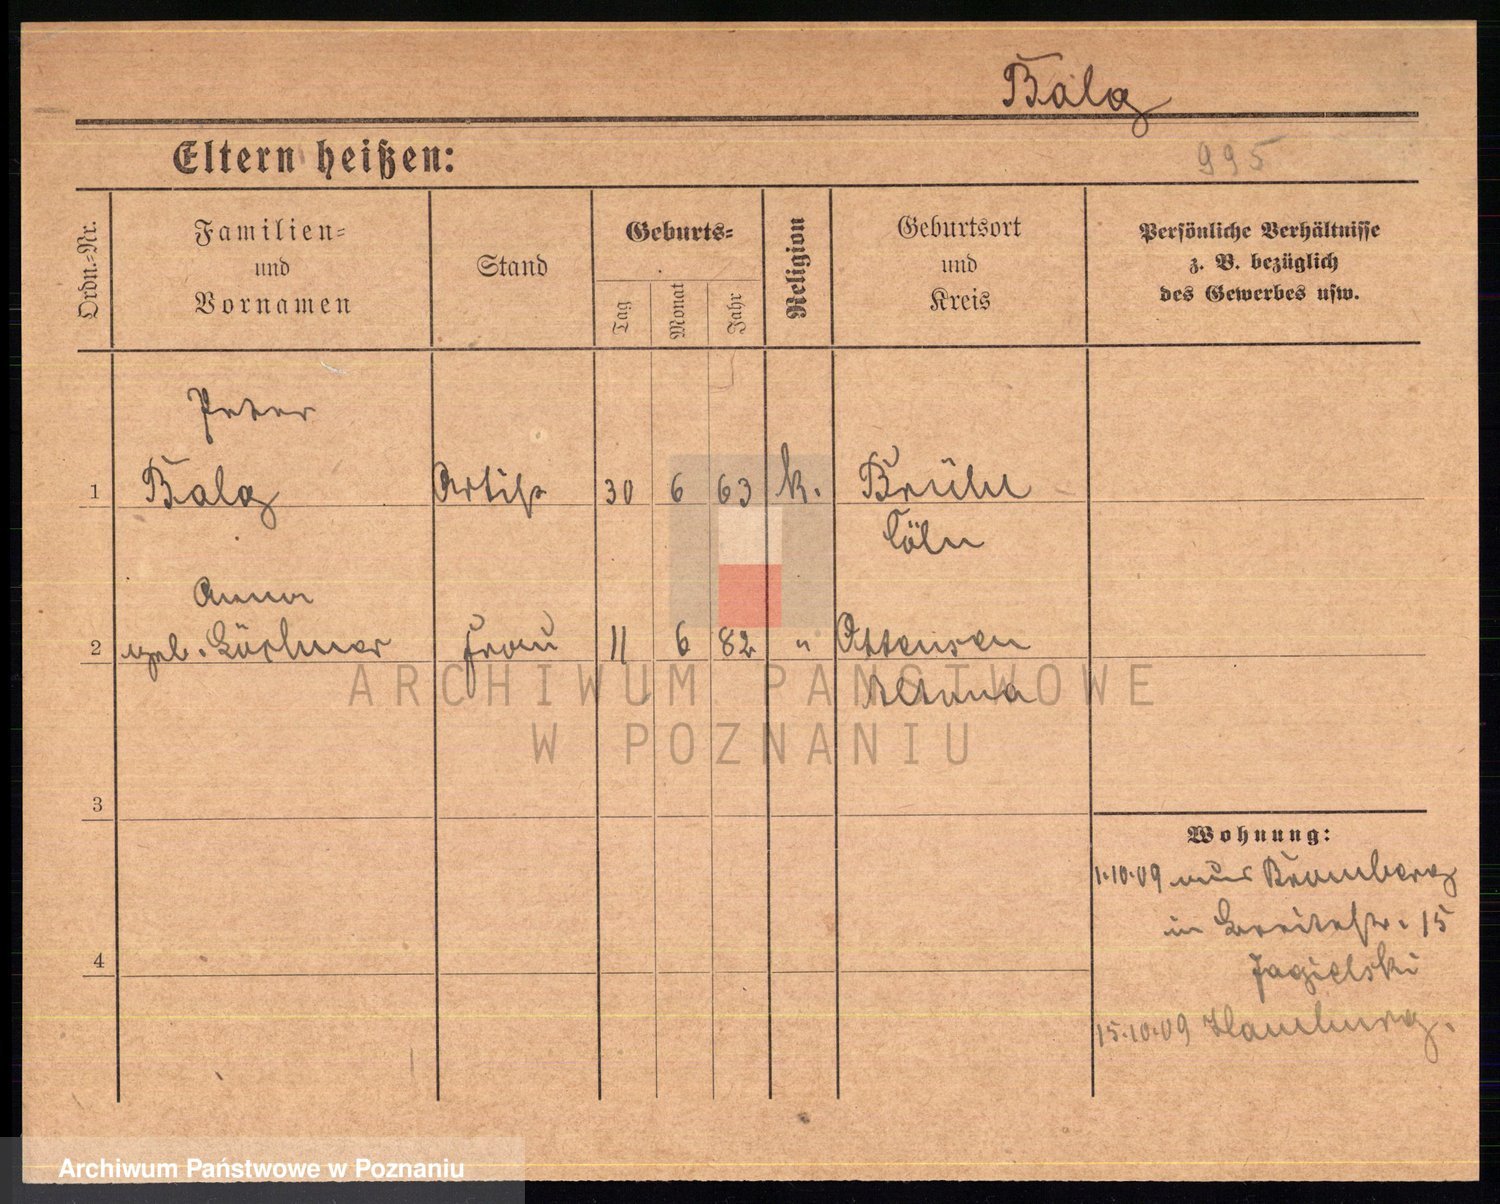 Balg
Eltern heißen:
995
Ordn.-Nr.
Familien-
und
Vornamen
Stand
Geburts-
Tag
Monat
Jahr
Religion
Geburtsort
und
Kreis
Persönliche Verhältnisse
z. B. bezüglich
des Gewerbes usw.
Peter
1 Balg Artist 30 6 63 k. Brühl
Cöln
Anna
2 geb. Frau 11 6 82 " Ottensen
Altona
ARCHIWUM PAŃSTWOWE
W POZNANIU
3
4
Wohnung:
1.10.09 aus Bromberg
in Breitestr. 15
Jagielski
15.10.09 Hamburg.
Archiwum Państwowe w Poznaniu